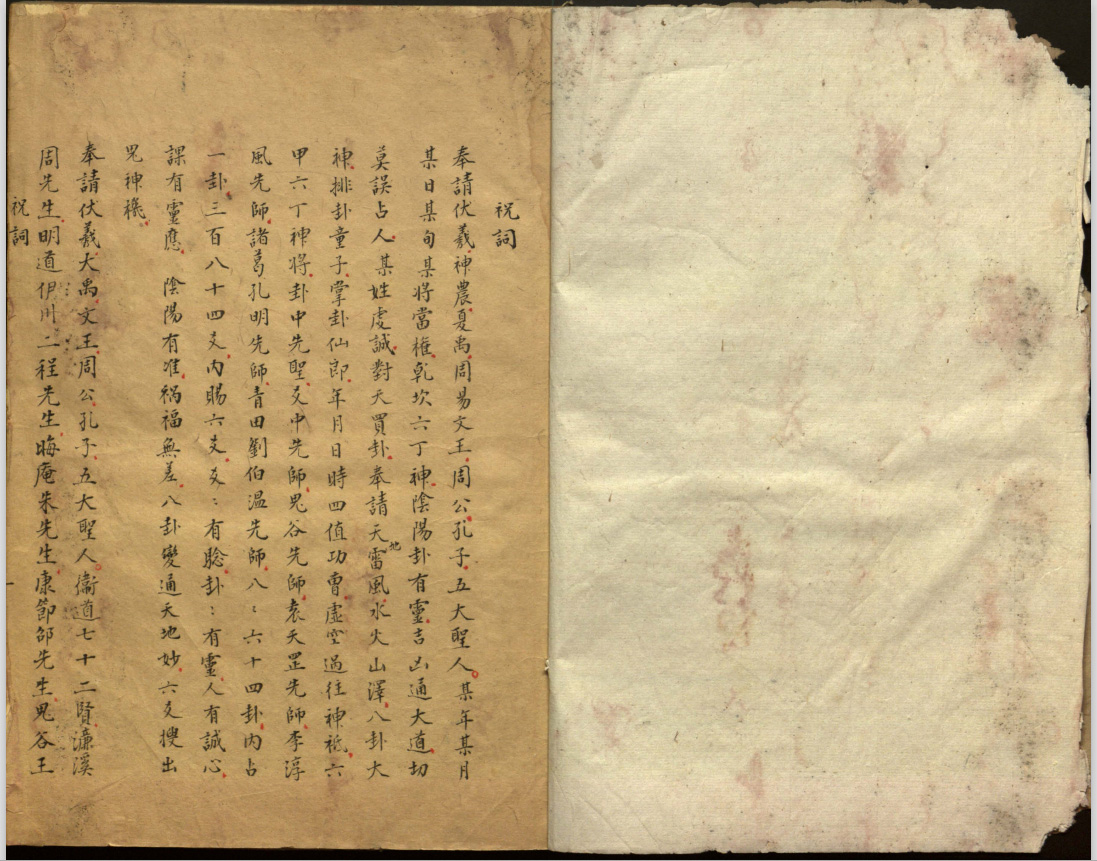 祝詞
奉請伏羲神農夏禹周易文王周公孔子五大聖人某年某月
某日某旬某將當權乹坎六丁神陰陽卦有靈吉凶通大道切
莫誤占人某姓虔誠對天買卦奉請天地雷風水火山澤八卦大
神排卦童子掌卦仙郎年月日時四值功曹虛空過往神祗六
甲六丁神將卦中先聖爻中先師鬼谷先師袁天罡先師李淳
風先師諸葛孔明先師青田劉伯温先師八〻六十四卦内占
一卦三百八十四爻内賜六爻爻〻有驗卦〻有靈人有誠心
課有靈應 陰陽有准禍福無差八卦變通天地妙六爻搜出
鬼神機
奉請伏羲大禹文王周公孔子五大聖人衞道七十二賢濂溪
周先生明道伊川二程先生晦庵朱先生康節邵先生鬼谷王
祝詞